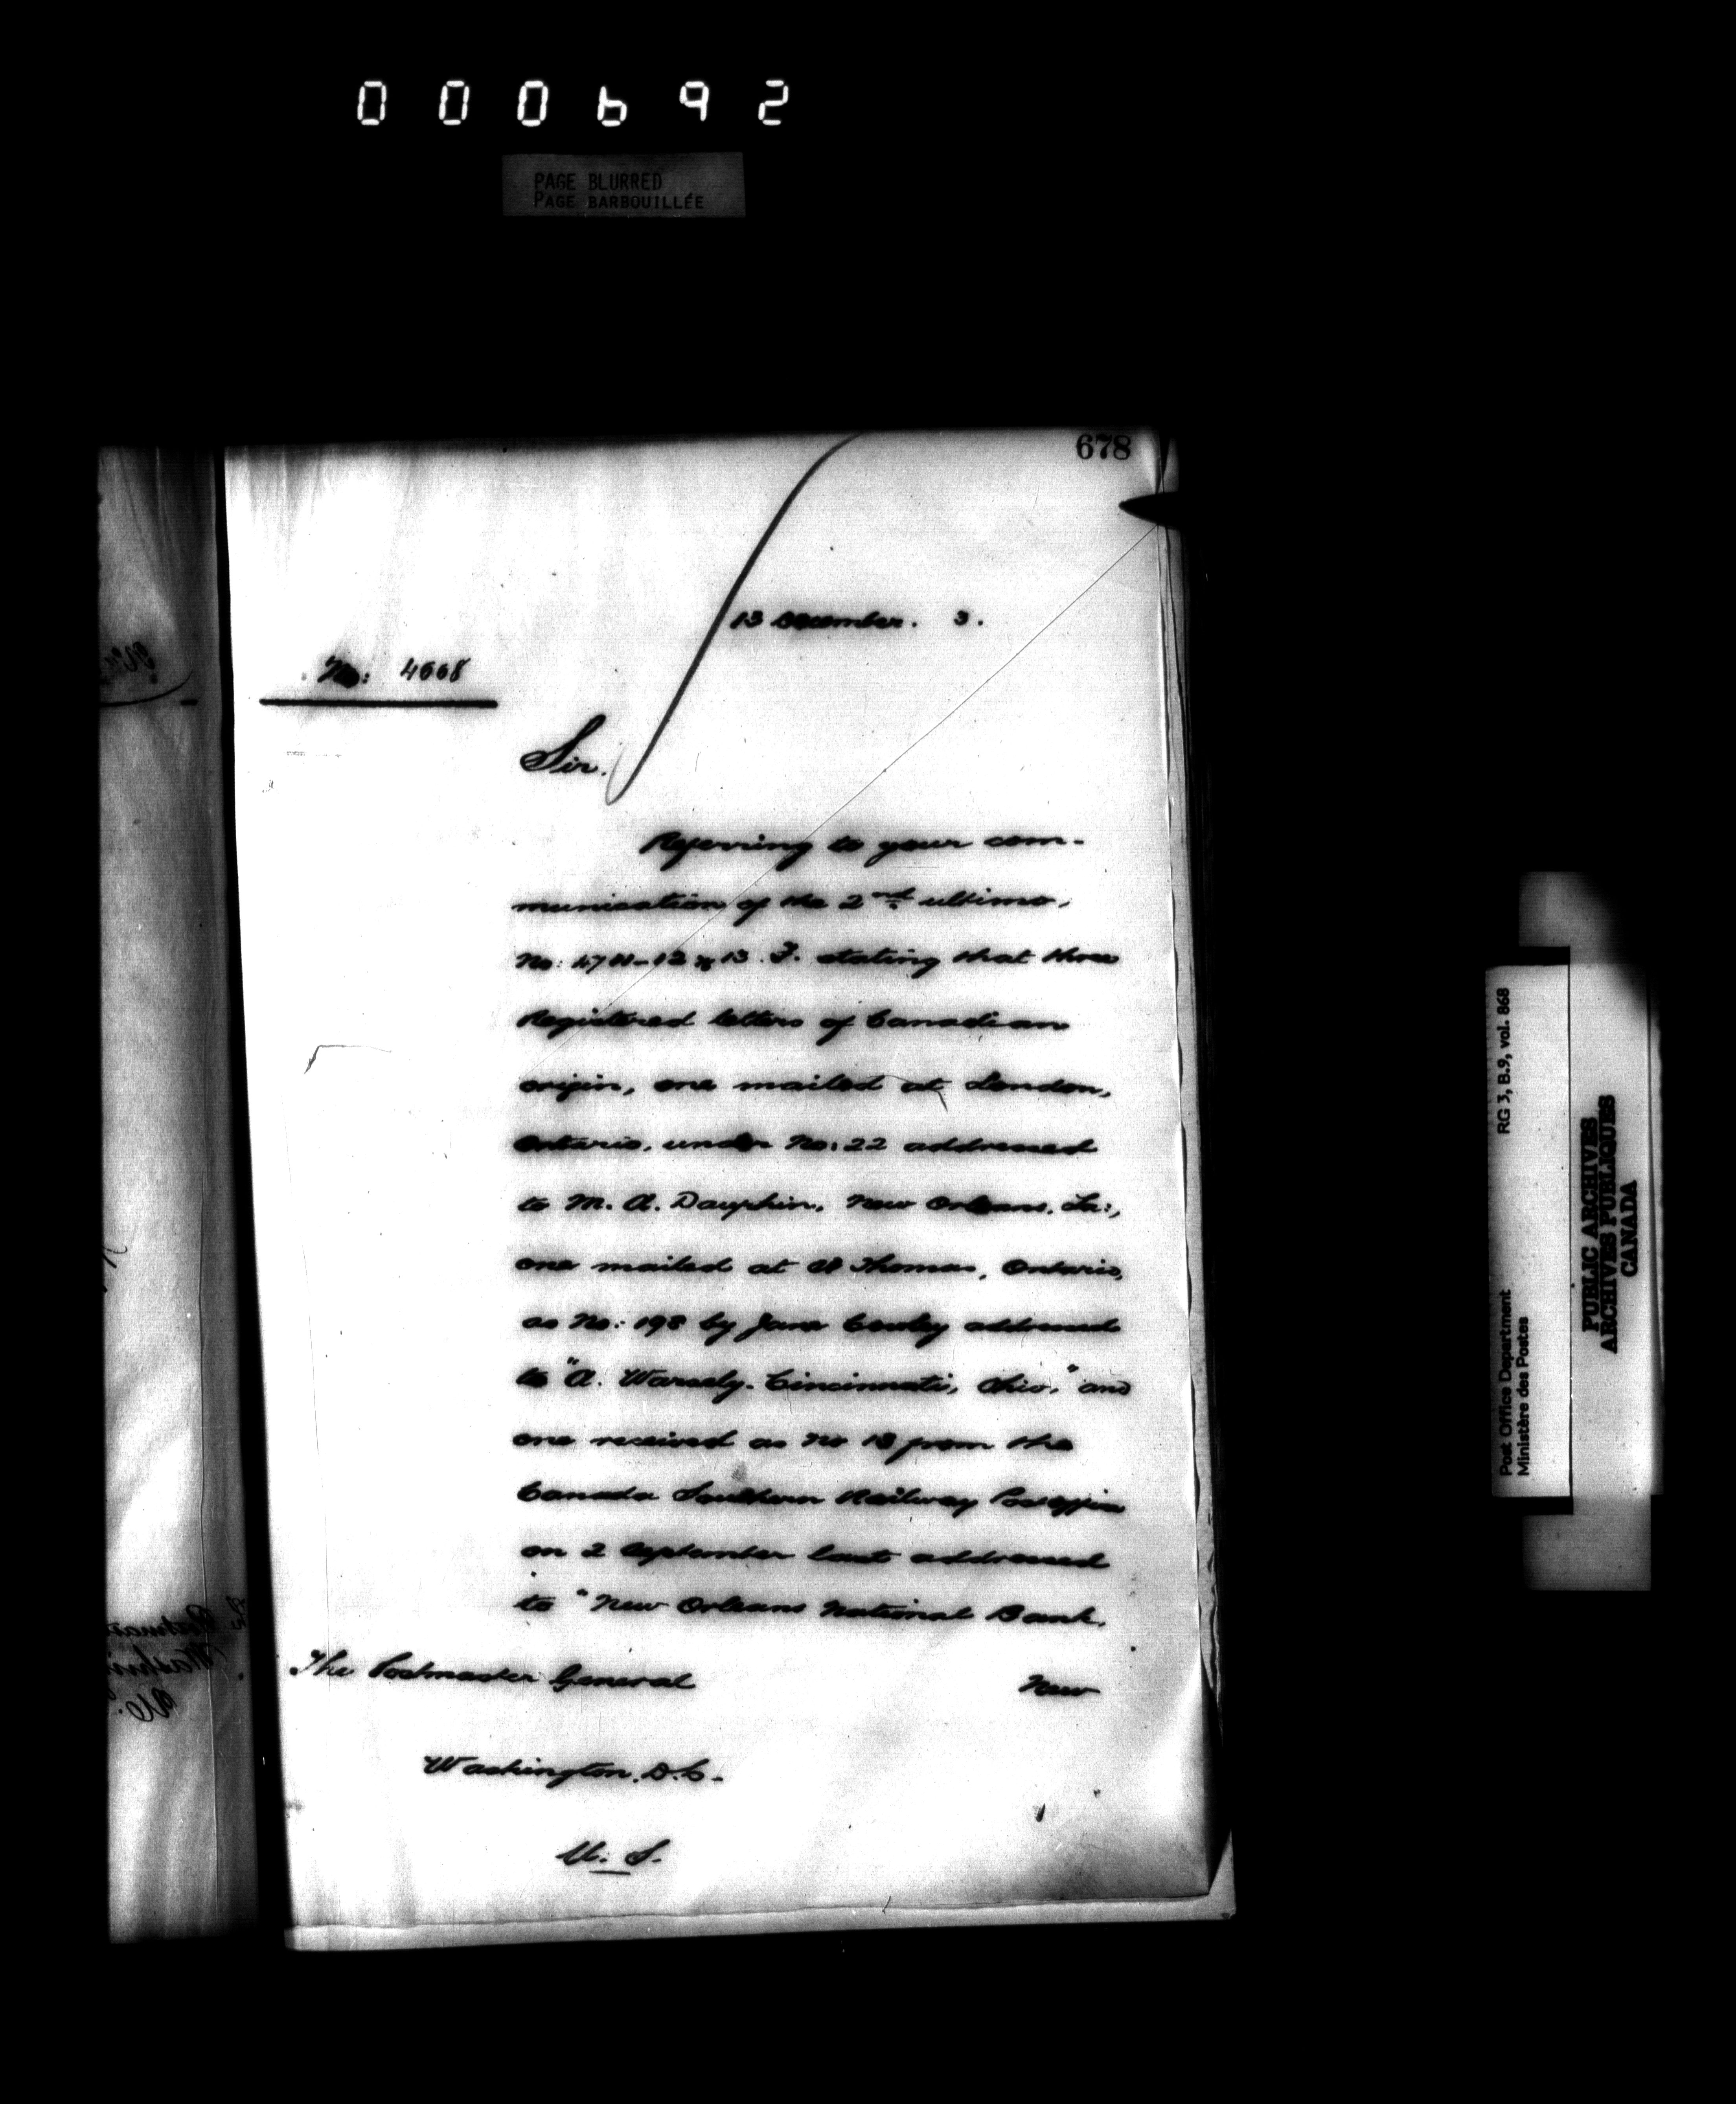 000692
PAGE BLURRED
PAGE BARBOUILLÉE
678
13 December. 3.
No: 4668
Sir.
Referring to your com-
munication of the 2nd ultimo,
No: 4711-12 & 13. F. stating that three
Registered letters of Canadian
origin, one mailed at London,
Ontario, under No: 22 addressed
to M. A. Dauphin, New Orleans, La:,
one mailed at St Thomas, Ontario,
as No: 198 by Jane addressed
to "A. Warsely. Cincinnati, Ohio," and
one received as No 18 from the
Canada Southern Railway Post office
on 2 September last addressed
to "New Orleans National Bank,
New
The Postmaster General
Washington. D.C.
U. S.
Post Office Department RG 3, B.9, vol. 868
Ministère des Postes
PUBLIC ARCHIVES
ARCHIVES PUBLIQUES
CANADA